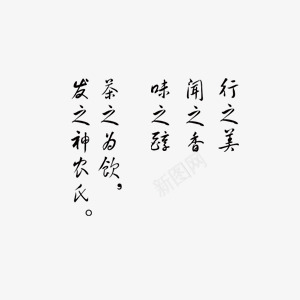 行之美
闻之香
味之醇
茶之为饮，
发之神农氏。
新图网